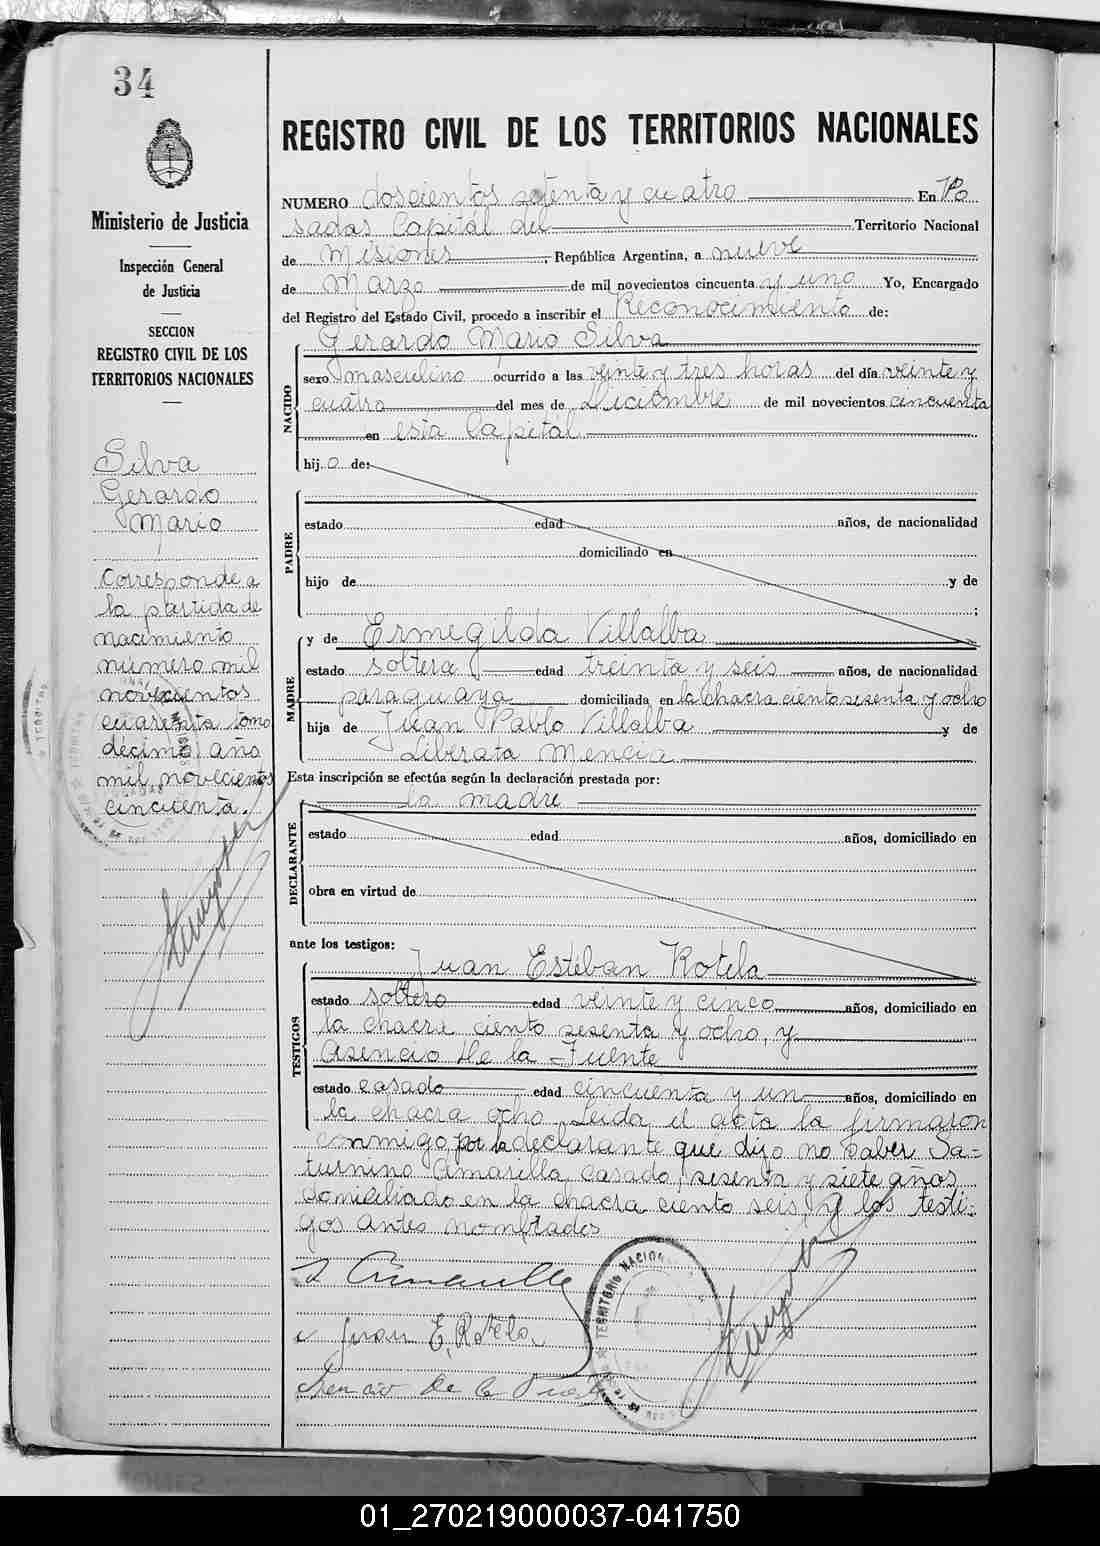 34
Ministerio de Justicia
Inspección General
de Justicia
SECCION
REGISTRO CIVIL DE LOS
TERRITORIOS NACIONALES
Silva
Gerardo
Mario
Corresponde a
la partida de
nacimiento
número mil
novecientos
cuarenta tomo
décimo año
mil novecientos
cincuenta.
REGISTRO CIVIL DE LOS TERRITORIOS NACIONALES
NUMERO doscientos setenta y cuatro En Po
sadas Capital del Territorio Nacional
de Misiones, República Argentina, a nueve
de Marzo de mil novecientos cincuenta y uno Yo, Encargado
del Registro del Estado Civil, procedo a inscribir el Reconocimiento de:
Gerardo Mario Silva
NACIDO
sexo masculino ocurrido a las veinte y tres horas del día veinte y
cuatro del mes de Diciembre de mil novecientos cincuenta
en esta Capital
hijo de:
PADRE
estado edad años, de nacionalidad
domiciliado en
hijo de y de
;
y de Ermegilda Villalba
MADRE
estado soltera edad treinta y seis años, de nacionalidad
paraguaya domiciliada en la chacra ciento sesenta y ocho
hija de Juan Pablo Villalba y de
Liberata Mencia
Esta inscripción se efectúa según la declaración prestada por:
la madre
DECLARANTE
estado edad años, domiciliado en
obra en virtud de
ante los testigos:
Juan Esteban Rotela
TESTIGOS
estado soltero edad veinte y cinco años, domiciliado en
la chacra ciento sesenta y ocho, y
Asencio De la Fuente
estado casado edad cincuenta y un años, domiciliado en
la chacra ocho. Leida el acta la firmaron
conmigo por la declarante que dijo no saber Sa-
turnino Amarilla, casado, sesenta y siete años
domiciliado en la chacra ciento seis, y los testi-
gos antes nombrados
S Amarilla
Juan E. Rotela
Asencio De la Fuente
TERRITORIO NACIONAL
01_270219000037-041750